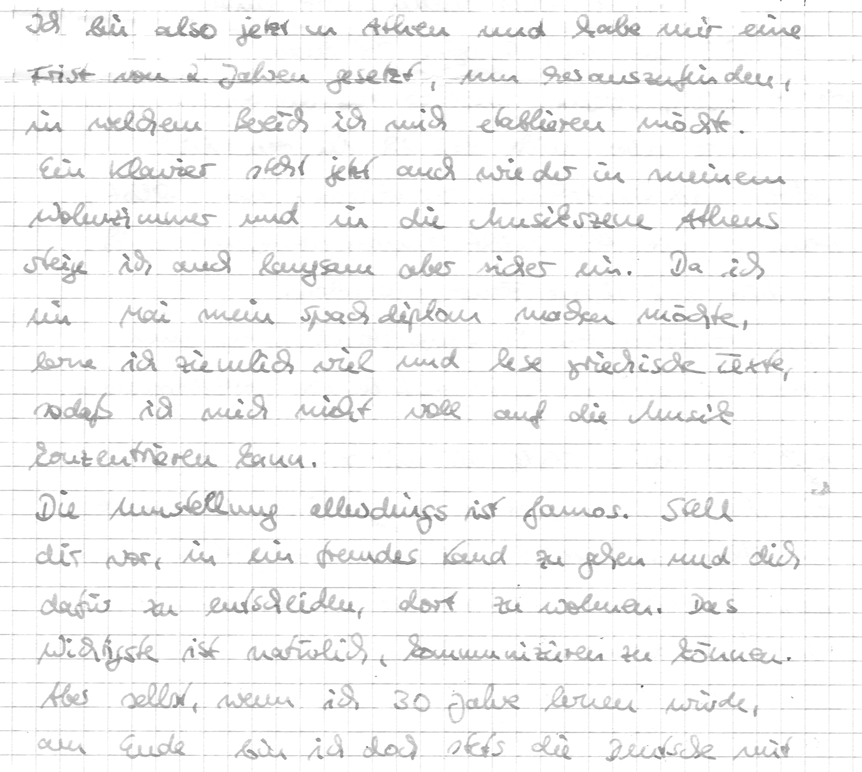 Ich bin also jetzt in Athen und habe mir eine
Frist von 2 Jahren gesetzt, um herauszufinden,
in welchem Bereich ich mich etablieren möchte.
Ein Klavier steht jetzt auch wieder in meinem
Wohnzimmer und in die Musikszene Athens
steige ich auch langsam aber sicher ein. Da ich
im Mai mein Sprachdiplom machen möchte,
lerne ich ziemlich viel und lese griechische Texte,
sodaß ich mich nicht voll auf die Musik
konzentrieren kann.
Die Umstellung allerdings ist famos. Stell
dir vor, in ein fremdes Land zu gehen und dich
dafür zu entscheiden, dort zu wohnen. Das
Wichtigste ist natürlich, kommunizieren zu können.
Aber selbst, wenn ich 30 Jahre lernen würde,
am Ende bin ich doch stets die Deutsche mit